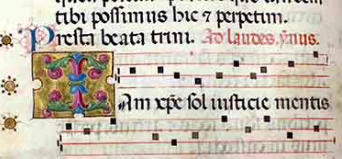 tibi possimus hic ⁊ perpetim.
Presta beata trini. Ad laudes. ẏmnus.
Iam xp̄e sol iusticie mentis